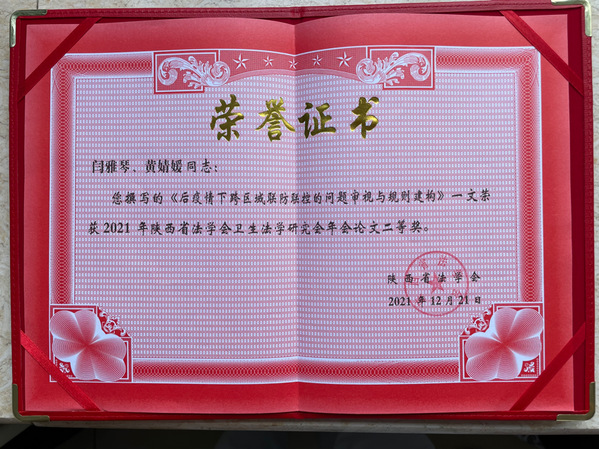 荣誉证书
闫雅琴、黄婧媛同志：
您撰写的《后疫情下跨区域联防联控的问题审视与规则建构》一文荣
获2021 年陕西省法学会卫生法学研究会年会论文二等奖。
陕西省法学会
2021 年12月21日